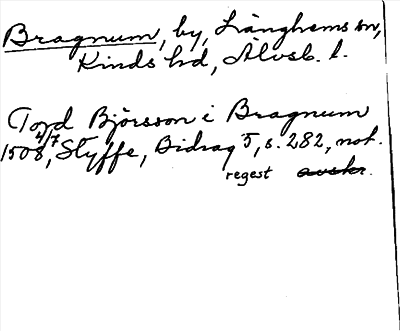 Bragnum, by, Länghems sn,
Kinds hd, Älvsb. l.
Tord Björsson i Bragnum
1508 4/7, Styffe, Bidrag 5, s. 282, not.
regest avskr.